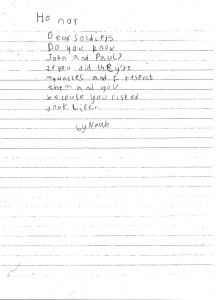 Honor
Dear Soldiers
Do you know
John and Paul?
If you did they're
my uncles and I respect
them and you
because you risked
your life.
by Noah